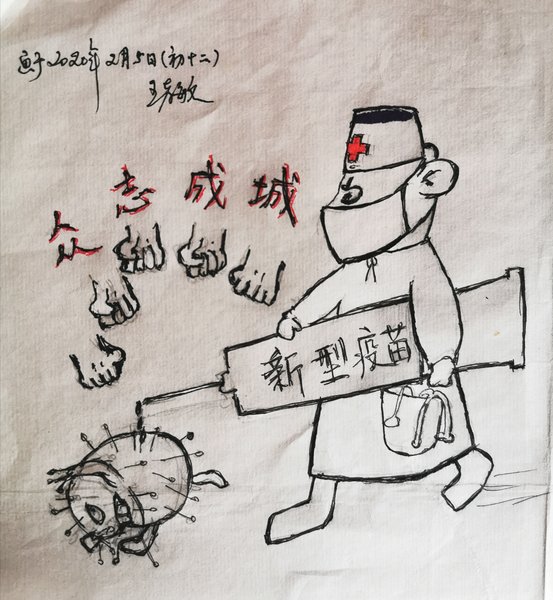 画于2020年2月5日(初十二)
众志成城
新型疫苗